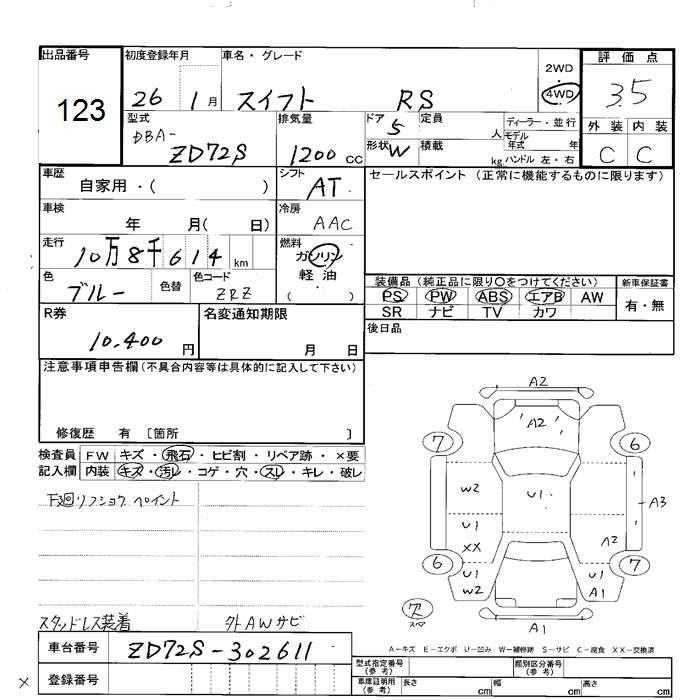 出品番号 初度登録年月 車名・グレード 2WD 評価点
123 26 1月 スイフト RS 4WD 3.5
型式 排気量 ドア 定員 ディーラー・並行 外装 内装
DBA- 5 人 モデル年式 年
ZD72S 1200cc 形状 W 積載 kg ハンドル 左・右 C C
車歴 シフト セールスポイント (正常に機能するものに限ります)
自家用・( ) AT
車検 冷房
年 月( 日) AAC
走行 燃料
10万8千614km ガソリン
色 色替 色コード 軽油
ブルー ZRZ ( )
装備品 (純正品に限り○をつけてください) 新車保証書
PS PW ABS エアB AW 有・無
SR ナビ TV カワ
R券 名変通知期限 後日品
10,400円 月 日
注意事項申告欄(不具合内容等は具体的に記入して下さい)
修復歴 有 〔箇所 〕
検査員 FW キズ・飛石・ヒビ割・リペア跡・×要
記入欄 内装 キズ・汚レ・コゲ・穴・スレ・キレ・破レ
下廻リフショク ペイント
スタッドレス装着 外AWサビ
A2
A2
7 6
W2 U1 A3
U1
XX A2
6 7
U1 U1
W2 A1
欠
スペア A1
A-キズ E-エクボ U-凹み W-補修跡 S-サビ C-腐食 XX-交換済
車台番号 ZD72S-302611
× 登録番号
型式指定番号(参考) 類別区分番号(参考)
車庫証明用(参考) 長さ cm 幅 cm 高さ cm